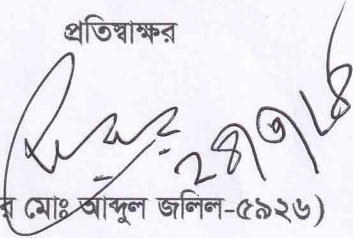 প্রতিস্বাক্ষর
২৪/৩/১৪
মোঃ আব্দুল জলিল-৫৯২৬)